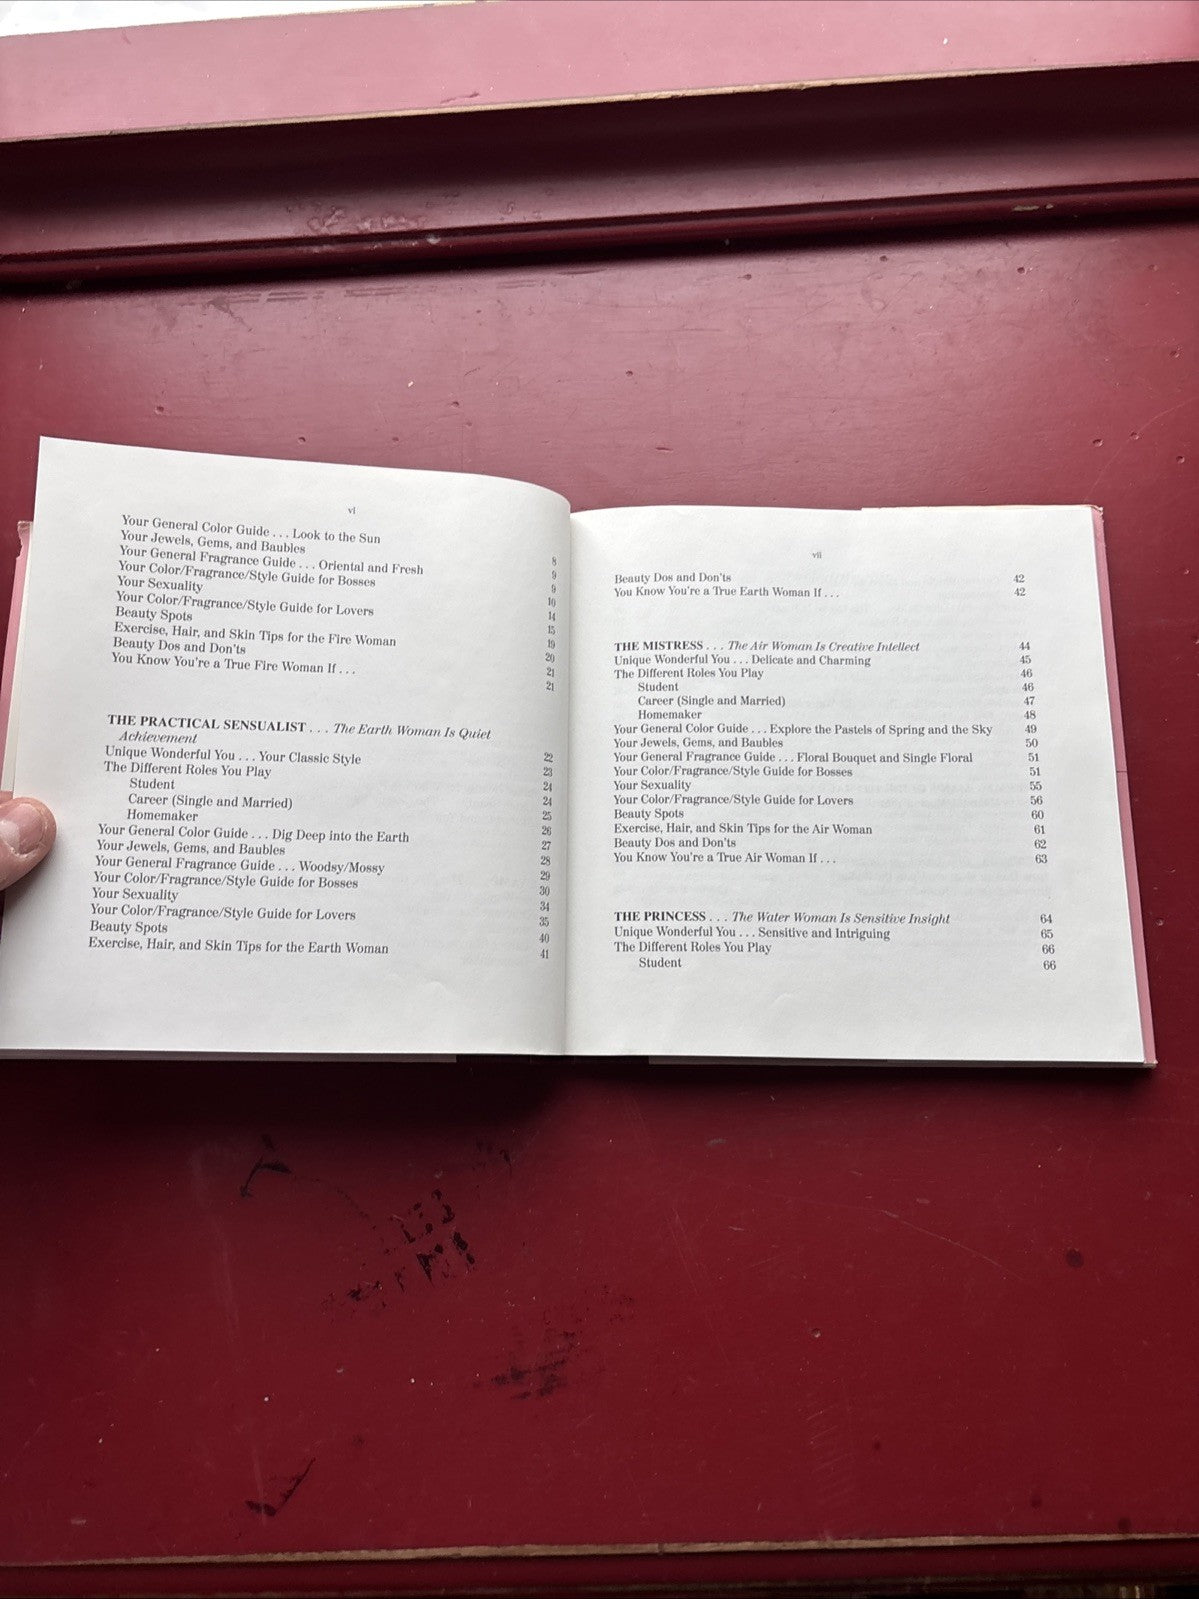 vi
Your General Color Guide . . . Look to the Sun 8
Your Jewels, Gems, and Baubles 9
Your General Fragrance Guide . . . Oriental and Fresh 9
Your Color/Fragrance/Style Guide for Bosses 10
Your Sexuality 14
Your Color/Fragrance/Style Guide for Lovers 15
Beauty Spots 19
Exercise, Hair, and Skin Tips for the Fire Woman 20
Beauty Dos and Don'ts 21
You Know You're a True Fire Woman If . . . 21
THE PRACTICAL SENSUALIST . . . The Earth Woman Is Quiet
Achievement 22
Unique Wonderful You . . . Your Classic Style 23
The Different Roles You Play 24
Student 24
Career (Single and Married) 25
Homemaker 26
Your General Color Guide . . . Dig Deep into the Earth 27
Your Jewels, Gems, and Baubles 28
Your General Fragrance Guide . . . Woodsy/Mossy 29
Your Color/Fragrance/Style Guide for Bosses 30
Your Sexuality 34
Your Color/Fragrance/Style Guide for Lovers 35
Beauty Spots 40
Exercise, Hair, and Skin Tips for the Earth Woman 41
vii
Beauty Dos and Don'ts 42
You Know You're a True Earth Woman If . . . 42
THE MISTRESS . . . The Air Woman Is Creative Intellect 44
Unique Wonderful You . . . Delicate and Charming 45
The Different Roles You Play 46
Student 46
Career (Single and Married) 47
Homemaker 48
Your General Color Guide . . . Explore the Pastels of Spring and the Sky 49
Your Jewels, Gems, and Baubles 50
Your General Fragrance Guide . . . Floral Bouquet and Single Floral 51
Your Color/Fragrance/Style Guide for Bosses 51
Your Sexuality 55
Your Color/Fragrance/Style Guide for Lovers 56
Beauty Spots 60
Exercise, Hair, and Skin Tips for the Air Woman 61
Beauty Dos and Don'ts 62
You Know You're a True Air Woman If . . . 63
THE PRINCESS . . . The Water Woman Is Sensitive Insight 64
Unique Wonderful You . . . Sensitive and Intriguing 65
The Different Roles You Play 66
Student 66